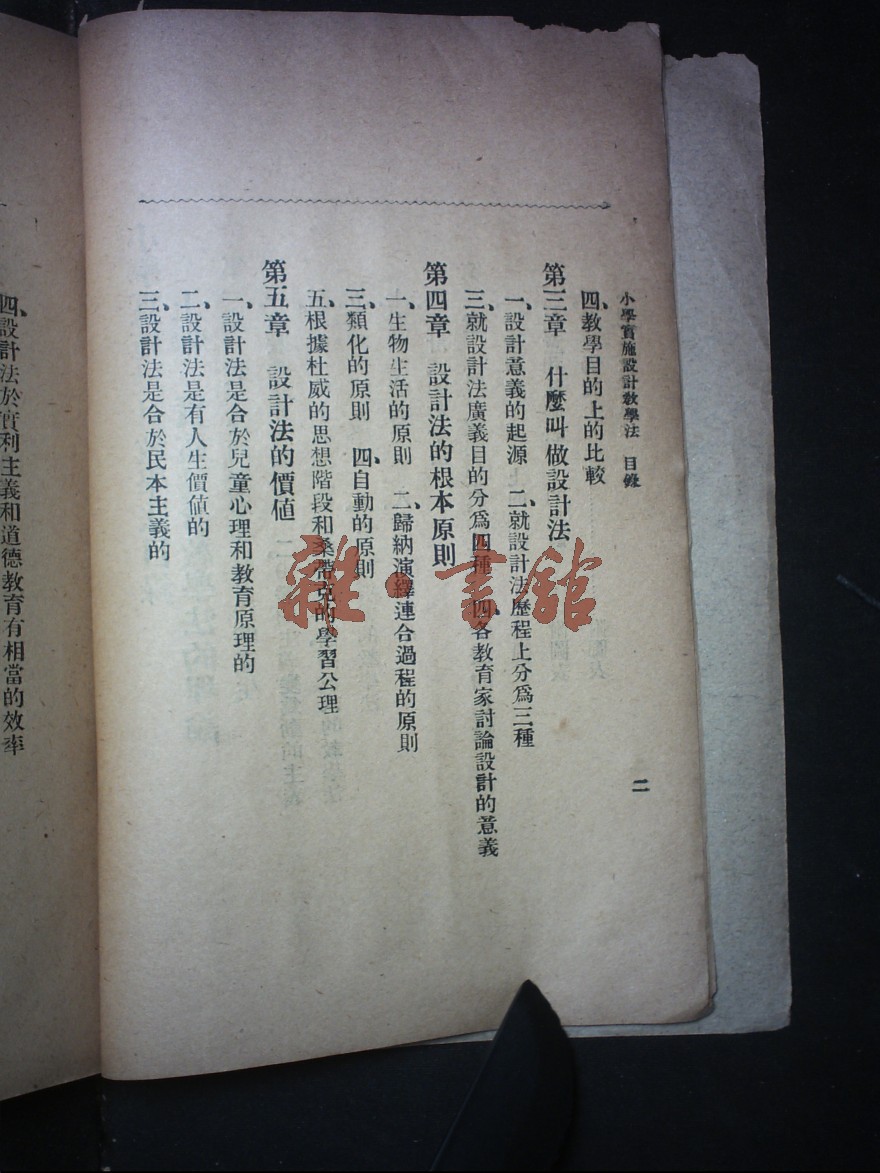 小學實施設計教學法　目錄
二
四、教學目的上的比較
第三章　什麼叫做設計法
一、設計意義的起源　二、就設計法歷程上分爲三種
三、就設計法廣義目的分爲四種　四、各教育家討論設計的意義
第四章　設計法的根本原則
一、生物生活的原則　二、歸納演繹連合過程的原則
三、類化的原則　四、自動的原則
五、根據杜威的思想階段和桑帶克的學習公理
第五章　設計法的價値
一、設計法是合於兒童心理和教育原理的
二、設計法是有人生價値的
三、設計法是合於民本主義的
四、設計法於實利主義和道德教育有相當的效率
雜·書館